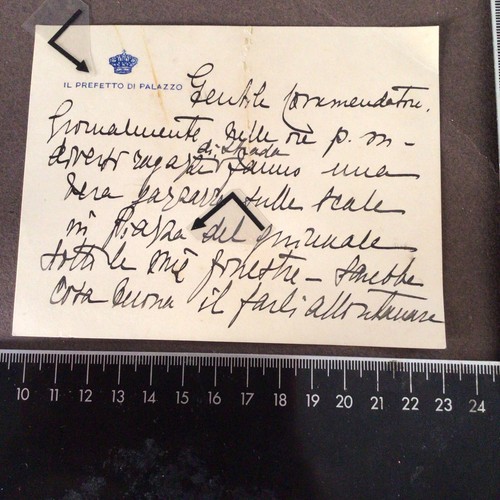 IL PREFETTO DI PALAZZO
Gentile Commendatore,
Giornalmente, nelle ore p. m –
di strada
diversi ragazzi fanno una
vera gazzarra sulle scale
in Piazza del Quirinale
sotto le mie finestre – Sarebbe
cosa buona il farli allontanare
10 11 12 13 14 15 16 17 18 19 20 21 22 23 24